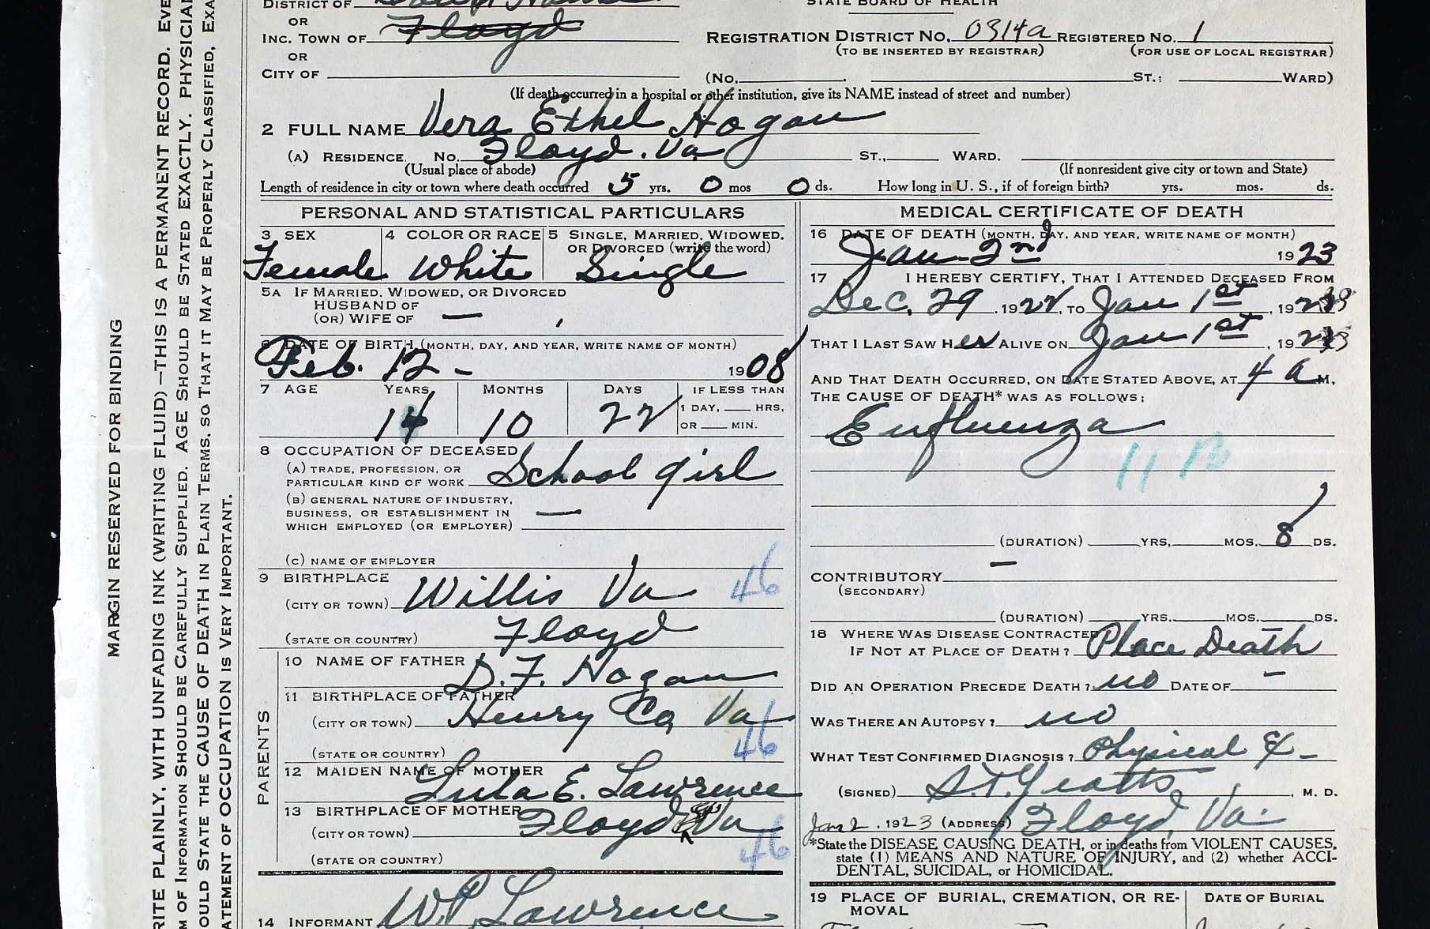 DISTRICT OF
STATE BOARD OF HEALTH
OR
INC. TOWN OF Floyd
REGISTRATION DISTRICT NO. 0314a REGISTERED NO. 1
(TO BE INSERTED BY REGISTRAR) (FOR USE OF LOCAL REGISTRAR)
OR
CITY OF (No. ST.; WARD)
(If death occurred in a hospital or other institution, give its NAME instead of street and number)
2 FULL NAME Vera Ethel Hogan
(A) RESIDENCE. No. Floyd. Va ST., WARD.
(Usual place of abode) (If nonresident give city or town and State)
Length of residence in city or town where death occurred 5 yrs. 0 mos 0 ds. How long in U. S., if of foreign birth? yrs. mos. ds.
PERSONAL AND STATISTICAL PARTICULARS
3 SEX 4 COLOR OR RACE 5 SINGLE, MARRIED, WIDOWED,
OR DIVORCED (write the word)
Female White Single
5A IF MARRIED, WIDOWED, OR DIVORCED
HUSBAND OF
(OR) WIFE OF —
6 DATE OF BIRTH (MONTH, DAY, AND YEAR, WRITE NAME OF MONTH)
Feb. 12 - 1908
7 AGE YEARS MONTHS DAYS IF LESS THAN
1 DAY, HRS.
14 10 22 OR MIN.
8 OCCUPATION OF DECEASED
(A) TRADE, PROFESSION, OR
PARTICULAR KIND OF WORK School girl
(B) GENERAL NATURE OF INDUSTRY,
BUSINESS, OR ESTABLISHMENT IN —
WHICH EMPLOYED (OR EMPLOYER)
(C) NAME OF EMPLOYER
9 BIRTHPLACE
(CITY OR TOWN) Willis Va 46
(STATE OR COUNTRY) Floyd
PARENTS
10 NAME OF FATHER D. F. Hogan
11 BIRTHPLACE OF FATHER
(CITY OR TOWN) Henry Co, Va 46
(STATE OR COUNTRY)
12 MAIDEN NAME OF MOTHER Lula E. Lawrence
13 BIRTHPLACE OF MOTHER
(CITY OR TOWN) Floyd Va
(STATE OR COUNTRY) 46
14 INFORMANT W.P. Lawrence
MEDICAL CERTIFICATE OF DEATH
16 DATE OF DEATH (MONTH, DAY, AND YEAR, WRITE NAME OF MONTH)
Jan 2nd 1923
17 I HEREBY CERTIFY, THAT I ATTENDED DECEASED FROM
Dec. 29, 1922, TO Jan 1st, 1923
THAT I LAST SAW HER ALIVE ON Jan 1st, 1923
AND THAT DEATH OCCURRED, ON DATE STATED ABOVE, AT 4 a M.
THE CAUSE OF DEATH* WAS AS FOLLOWS:
Enfluenza
11 B
(DURATION) YRS. MOS. 8 DS.
CONTRIBUTORY —
(SECONDARY)
(DURATION) YRS. MOS. DS.
18 WHERE WAS DISEASE CONTRACTED
IF NOT AT PLACE OF DEATH? Place Death
DID AN OPERATION PRECEDE DEATH? no DATE OF -
WAS THERE AN AUTOPSY? no
WHAT TEST CONFIRMED DIAGNOSIS? Physical
(SIGNED) S.T. Yeatts, M. D.
Jan 2, 1923 (ADDRESS) Floyd, Va.
*State the DISEASE CAUSING DEATH, or in deaths from VIOLENT CAUSES,
state (1) MEANS AND NATURE OF INJURY, and (2) whether ACCI-
DENTAL, SUICIDAL, or HOMICIDAL.
19 PLACE OF BURIAL, CREMATION, OR RE-
MOVAL
DATE OF BURIAL
MARGIN RESERVED FOR BINDING
RITE PLAINLY, WITH UNFADING INK (WRITING FLUID)—THIS IS A PERMANENT RECORD. EVE
M OF INFORMATION SHOULD BE CAREFULLY SUPPLIED. AGE SHOULD BE STATED EXACTLY. PHYSICIA
OULD STATE THE CAUSE OF DEATH IN PLAIN TERMS, SO THAT IT MAY BE PROPERLY CLASSIFIED. EXA
ATEMENT OF OCCUPATION IS VERY IMPORTANT.